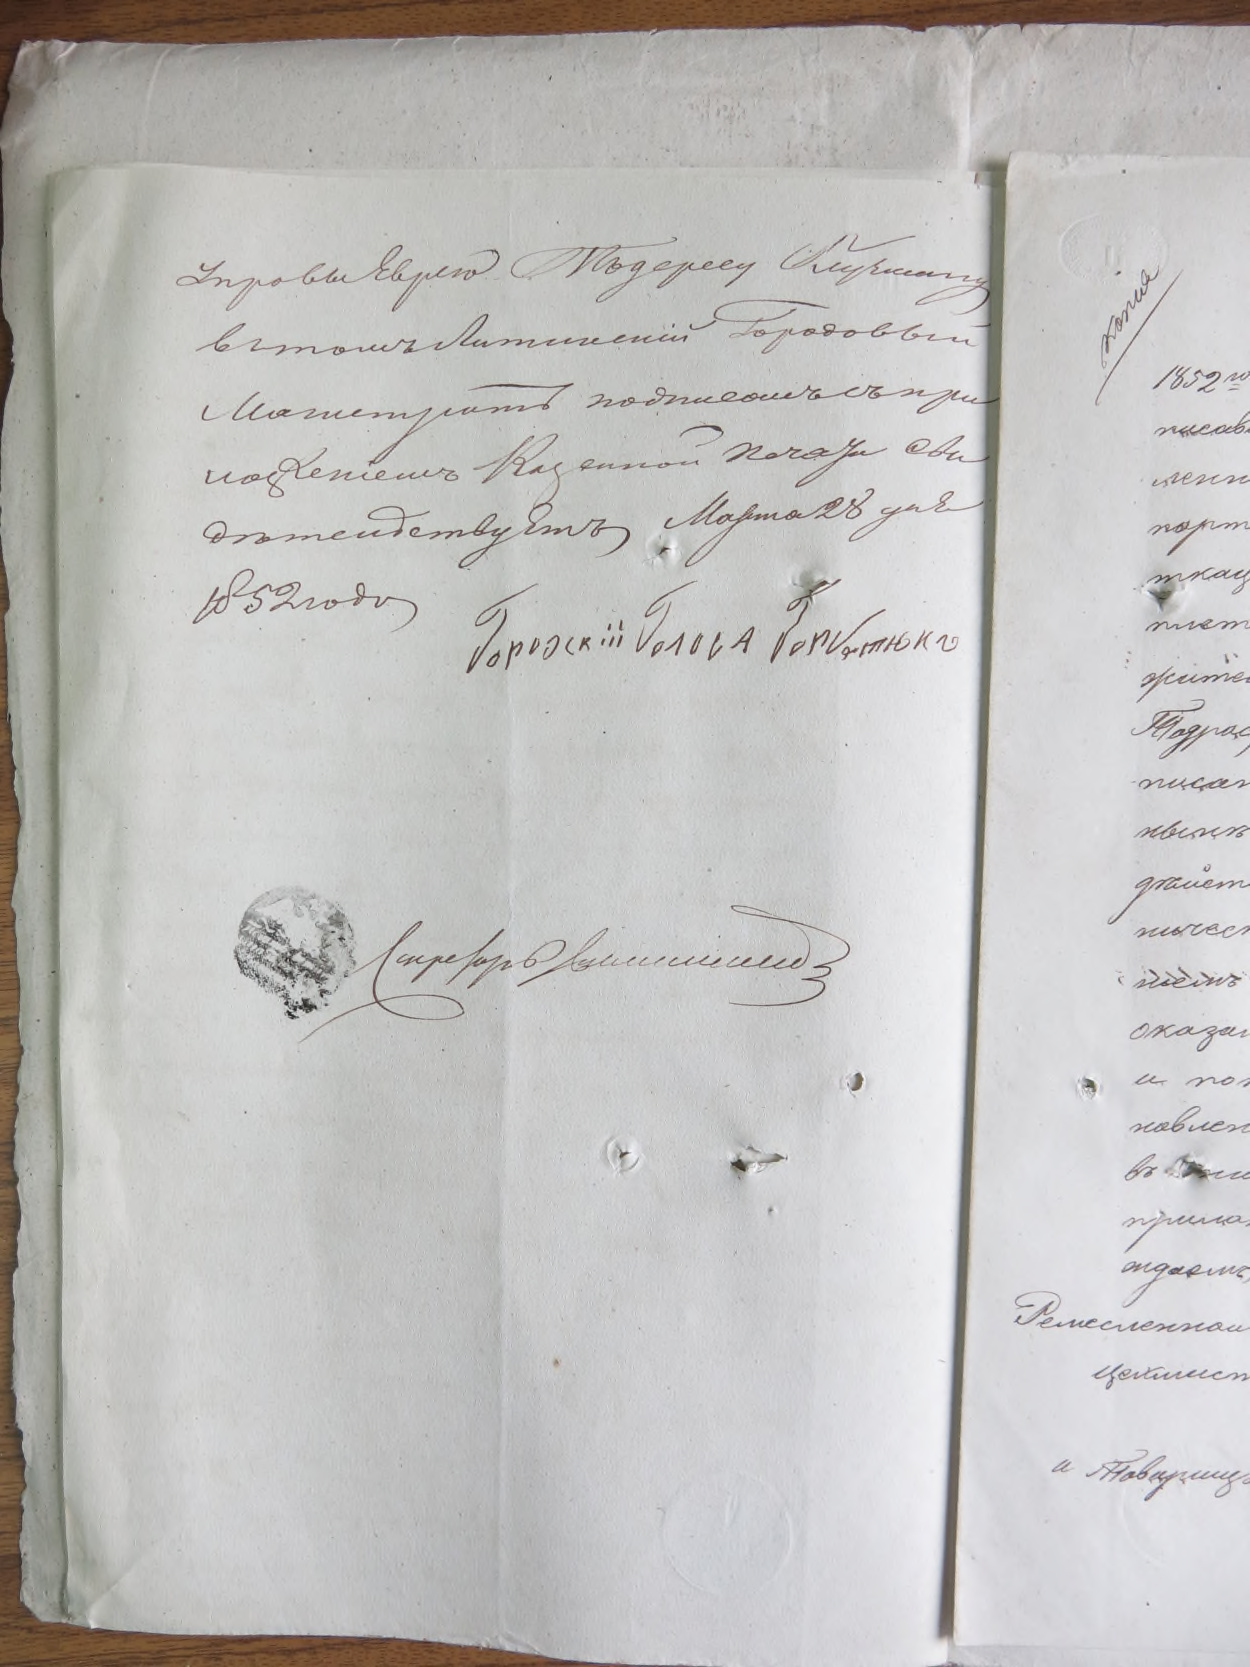 Управы Еврею Тодересу Клугману
въ томъ Литинскій Городовый
Магистратъ подписомъ съ при
ложеніемъ Казенной печати сви
дѣтельствуетъ Марта 28 дня
1852 года
Городскій Голова
Секретарь
копия
1852 го
писав
ленн
порт
ткац
пет
жител
Тодрос
писан
нымъ
дѣйст
ническ
немъ
оказал
и пол
новлен
въ
прилож
ждаемъ
Ремесленной
цехмист
и Товарищъ